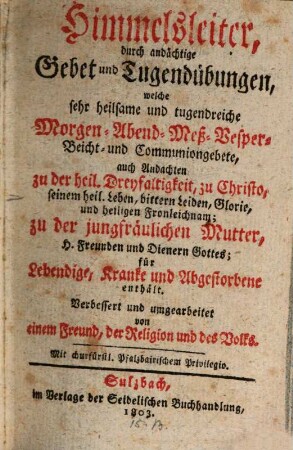 Himmelsleiter,
durch andächtige
Gebet und Tugendübungen,
welche
sehr heilsame und tugendreiche
Morgen- Abend- Meß- Vesper-
Beicht- und Communiongebete,
auch Andachten
zu der heil. Dreyfaltigkeit, zu Christo,
seinem heil. Leben, bittern Leiden, Glorie,
und heiligen Fronleichnam;
zu der jungfräulichen Mutter,
H. Freunden und Dienern Gottes;
für
Lebendige, Kranke und Abgestorbene
enthält.
Verbessert und umgearbeitet
von
einem Freund, der Religion und des Volks.
Mit churfürstl. Pfalzbairischem Privilegio.
Sulzbach,
im Verlage der Seidelischen Buchhandlung,
1803.